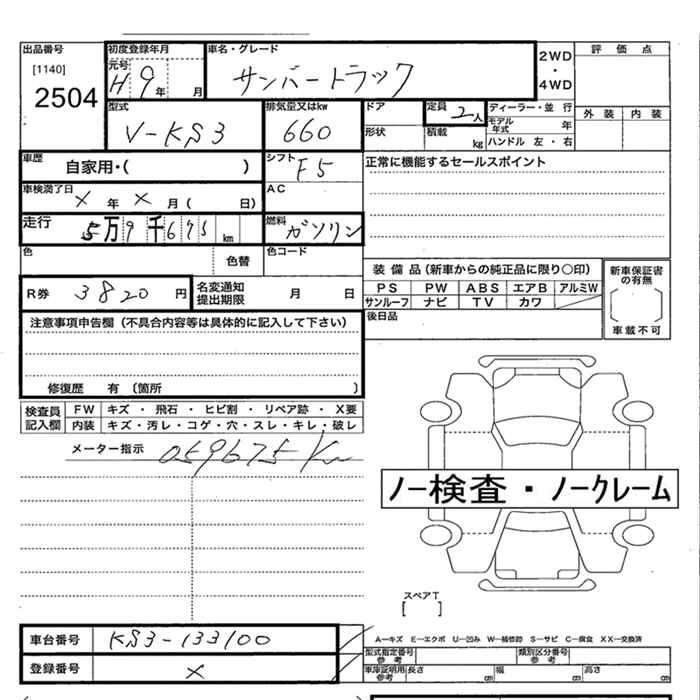 出品番号 初度登録年月 車名・グレード 2WD 評価点
[1140] 元号 H9年 月 サンバートラック ・
2504 4WD
型式 排気量又はkw ドア 定員 2人 ディーラー・並行 外装 内装
V-KS3 660 形状 積載 kg モデル年式 年
ハンドル 左・右
車歴 自家用・( ) シフト F5 正常に機能するセールスポイント
車検満了日 × 年 × 月( 日) AC
走行 5万9千675km 燃料 ガソリン
色 色替 色コード
装備品(新車からの純正品に限り〇印) 新車保証書の有無
R券 3820円 名変通知提出期限 月 日 PS PW ABS エアB アルミW
サンルーフ ナビ TV カワ
注意事項申告欄(不具合内容等は具体的に記入して下さい) 後日品 車載不可
修復歴 有(箇所 )
検査員記入欄 FW キズ・飛石・ヒビ割・リペア跡・X要
内装 キズ・汚レ・コゲ・穴・スレ・キレ・破レ
メーター指示 059675Km
ノー検査・ノークレーム
スペアT
[ ]
車台番号 KS3-133100 A―キズ E―エクボ U―凹み W―補修跡 S―サビ C―腐食 XX―交換済
型式指定番号参考 類別区分番号参考
登録番号 × 車庫証明用参考 長さ cm 幅 cm 高さ cm